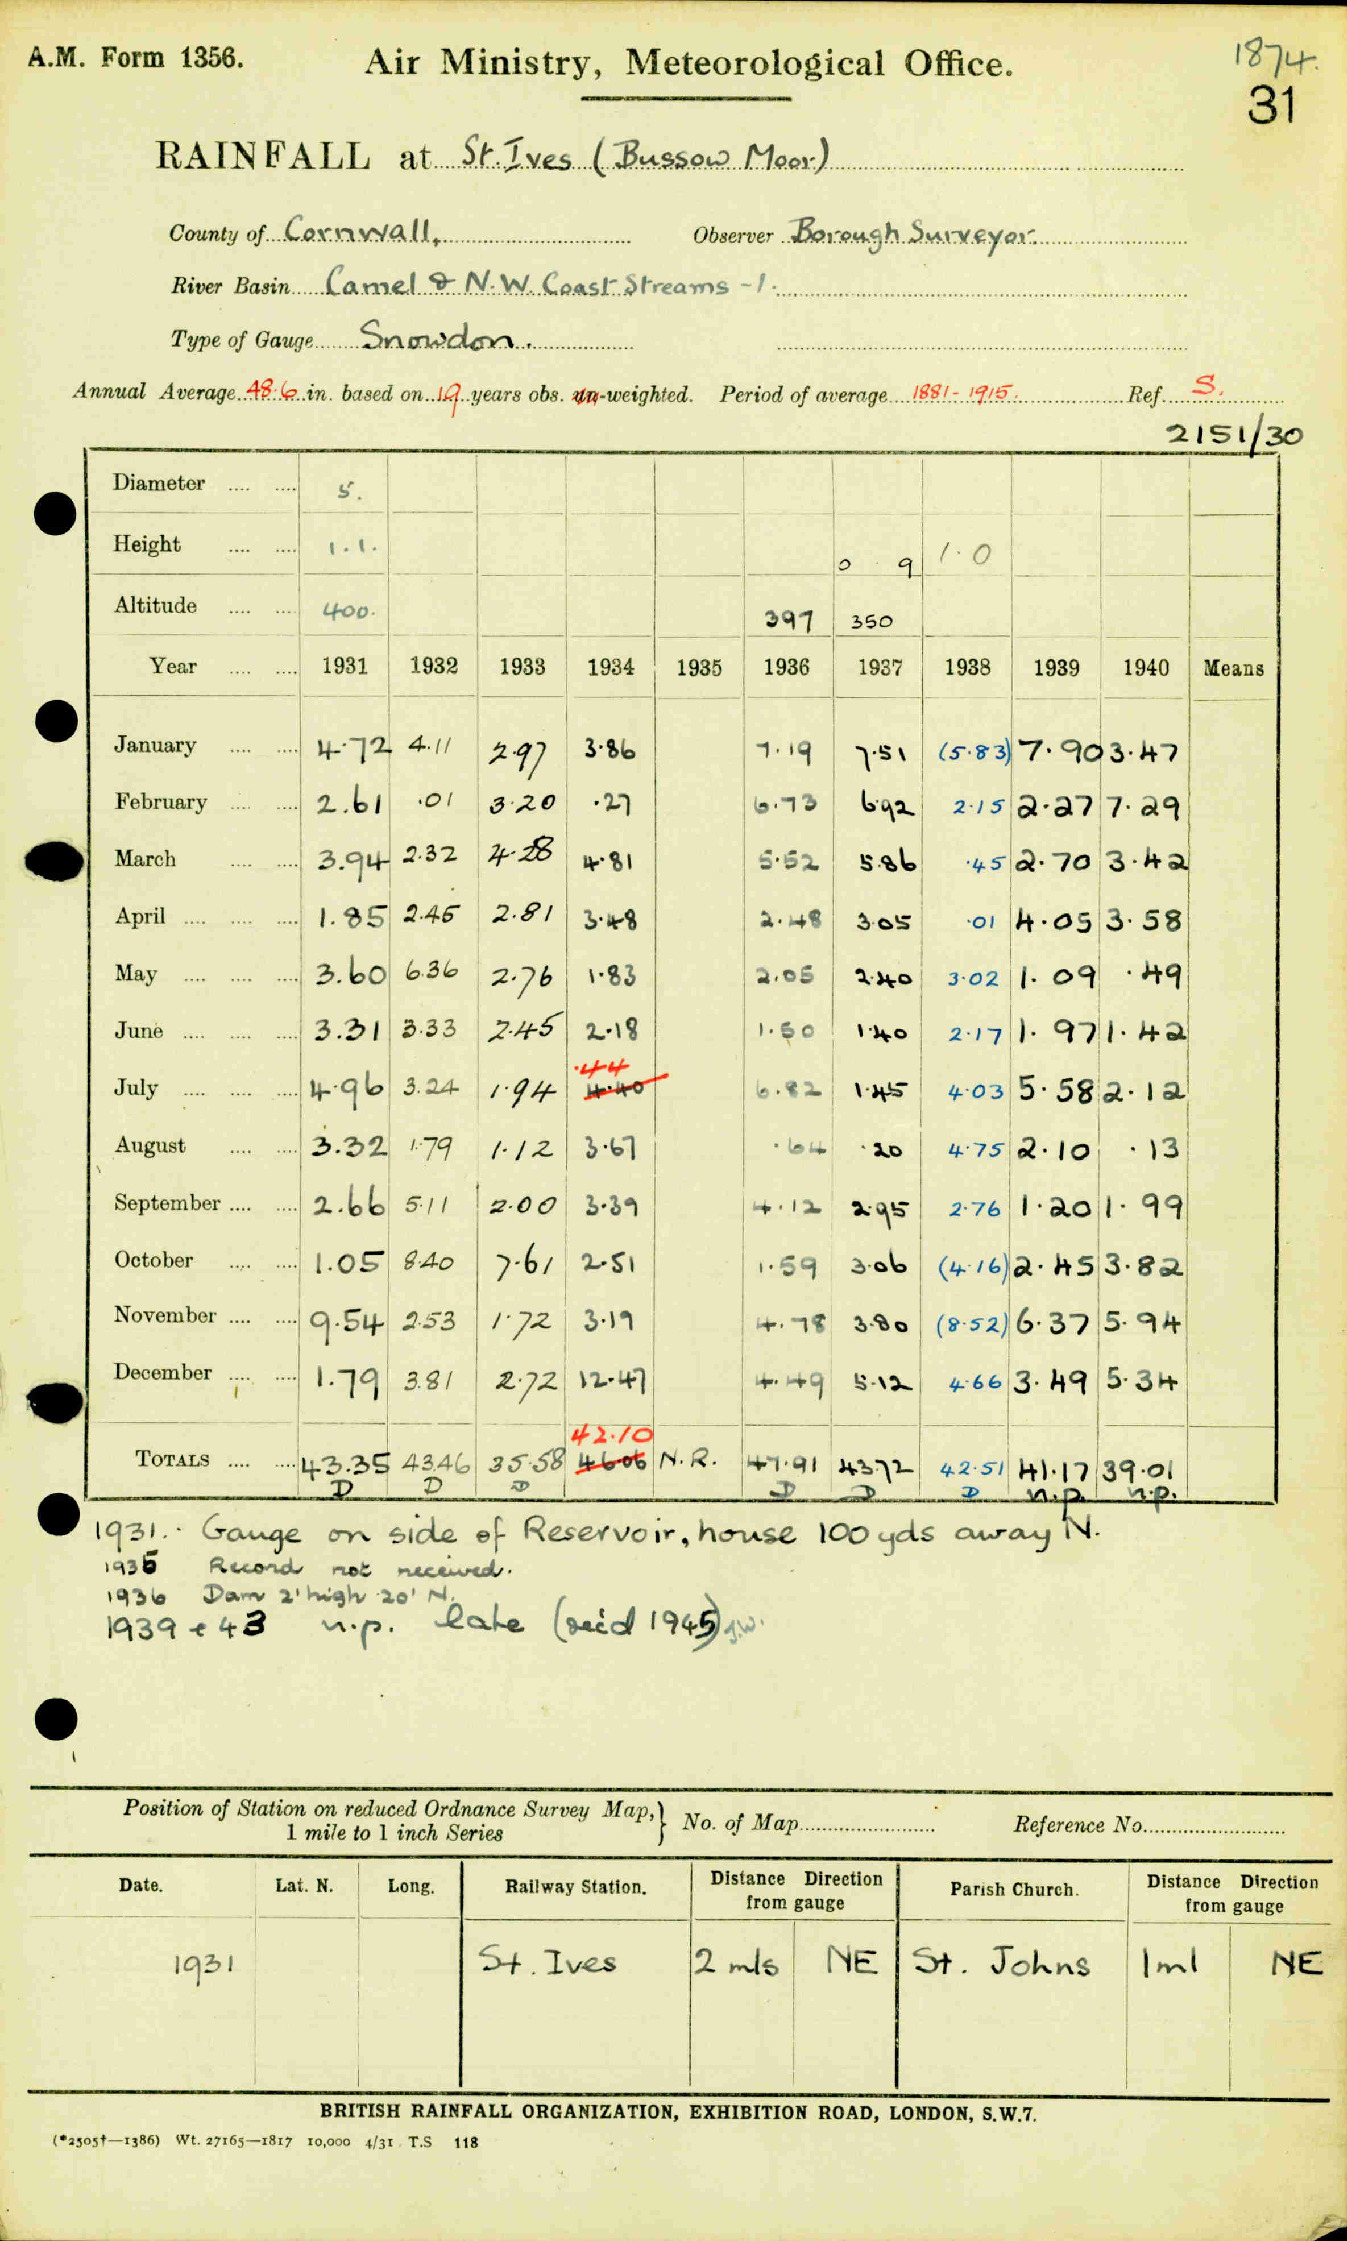 A.M. Form 1356.
Air Ministry, Meteorological Office.
1874.
31
RAINFALL at St. Ives (Bussow Moor)
County of Cornwall. Observer Borough Surveyor.
River Basin Camel & N.W. Coast Streams -1.
Type of Gauge Snowdon.
Annual Average 48.6 in. based on 19 years obs. un-weighted. Period of average 1881-1915. Ref. S.
2151/30
Diameter .... .... 5.
Height .... .... 1.1. 0 9 1.0
Altitude .... .... 400. 397 350
Year .... .... 1931 1932 1933 1934 1935 1936 1937 1938 1939 1940 Means
January .... .... 4.72 4.11 2.97 3.86 7.19 7.51 (5.83) 7.90 3.47
February .... .... 2.61 .01 3.20 .27 6.73 6.92 2.15 2.27 7.29
March .... .... 3.94 2.32 4.28 4.81 5.52 5.86 .45 2.70 3.42
April .... .... .... 1.85 2.45 2.81 3.48 2.48 3.05 .01 4.05 3.58
May .... .... .... 3.60 6.36 2.76 1.83 2.05 2.40 3.02 1.09 .49
June .... .... .... 3.31 3.33 2.45 2.18 1.50 1.40 2.17 1.97 1.42
.44
July .... .... .... 4.96 3.24 1.94 4.40 6.82 1.45 4.03 5.58 2.12
August .... .... 3.32 1.79 1.12 3.67 .64 .20 4.75 2.10 .13
September .... .... 2.66 5.11 2.00 3.39 4.12 2.95 2.76 1.20 1.99
October .... .... 1.05 8.40 7.61 2.51 1.59 3.06 (4.16) 2.45 3.82
November .... .... 9.54 2.53 1.72 3.19 4.78 3.80 (8.52) 6.37 5.94
December .... .... 1.79 3.81 2.72 12.47 4.49 5.12 4.66 3.49 5.34
42.10
TOTALS .... .... 43.35 43.46 35.58 46.06 N.R. 47.91 43.72 42.51 41.17 39.01
D D D D D D n.p. n.p.
1931. Gauge on side of Reservoir, house 100 yds away N.
1935 Record not received.
1936 Dam 2' high 20' N.
1939 & 43 n.p. late (rec'd 1945) J.W.
Position of Station on reduced Ordnance Survey Map,} No. of Map Reference No.
1 mile to 1 inch Series
Date. Lat. N. Long. Railway Station. Distance Direction from gauge Parish Church. Distance Direction from gauge
1931 St. Ives 2 mls NE St. Johns 1 ml NE
BRITISH RAINFALL ORGANIZATION, EXHIBITION ROAD, LONDON, S.W.7.
(*2505†—1386) Wt. 27165—1817 10,000 4/31 T.S 118